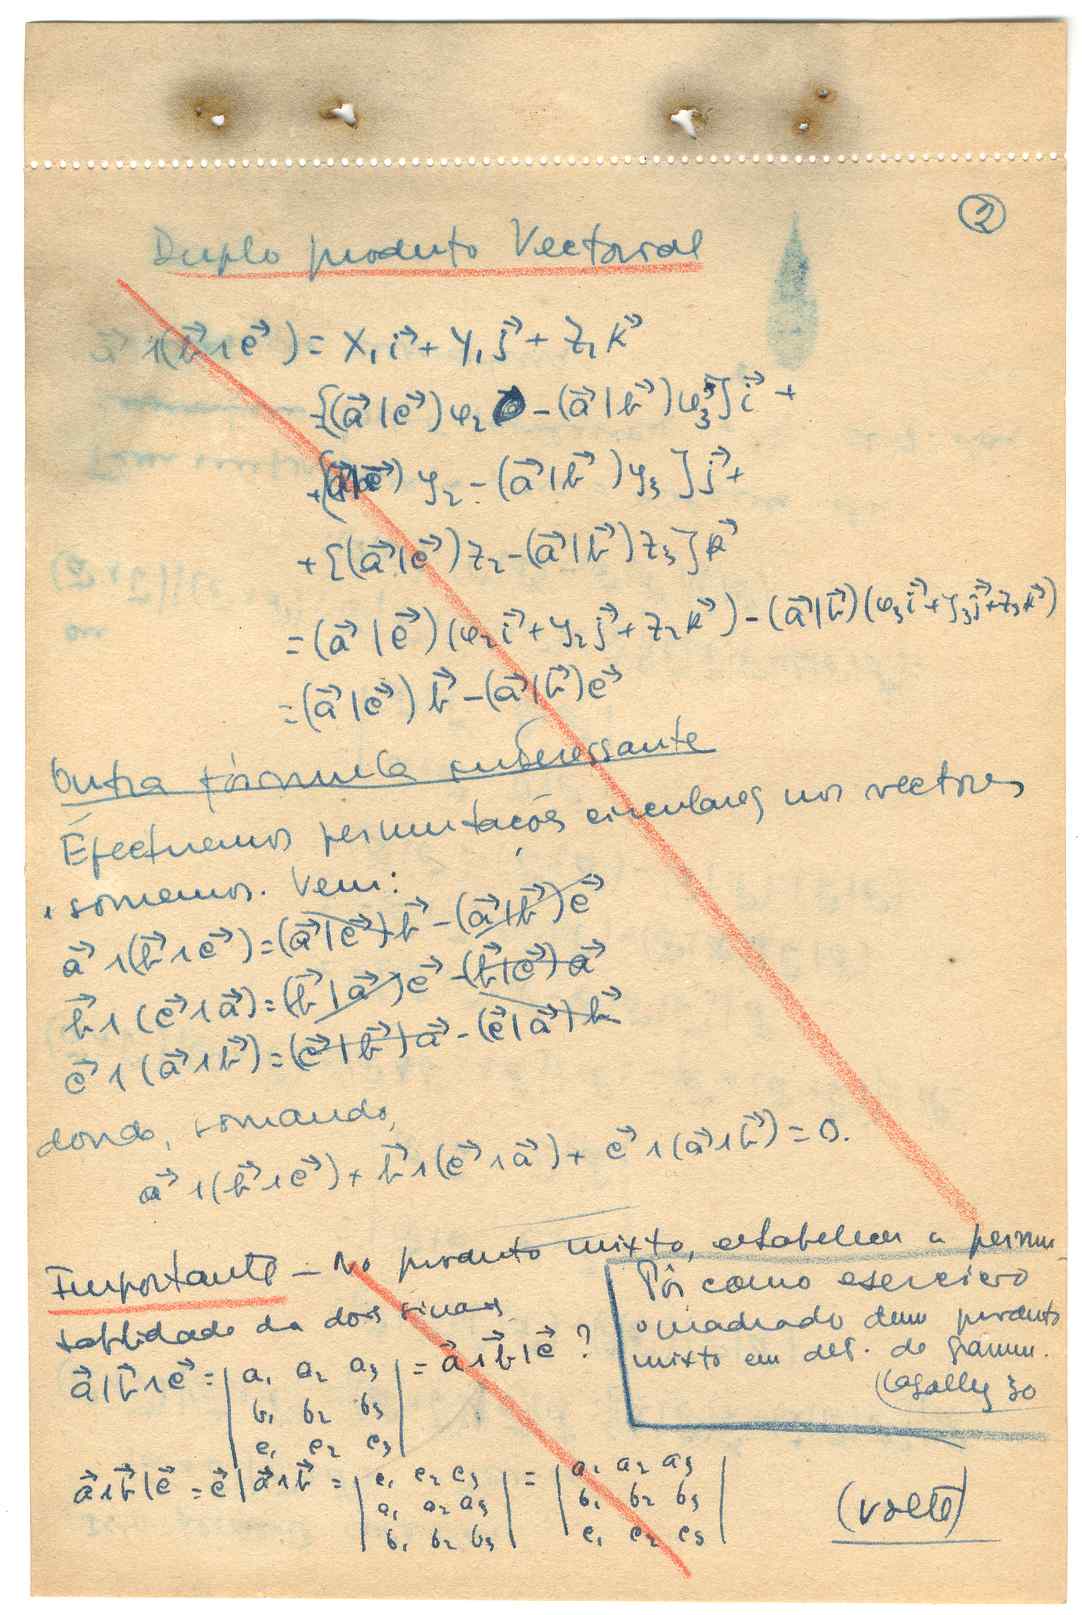 ②
Duplo produto Vectorial
a⃗ ∧ (b⃗ ∧ c⃗) = X₁ i⃗ + Y₁ j⃗ + Z₁ k⃗
{(a⃗ | c⃗) x₂ - (a⃗ | b⃗) x₃} i⃗ +
+ {(a⃗ | c⃗) y₂ - (a⃗ | b⃗) y₃} j⃗ +
+ {(a⃗ | c⃗) z₂ - (a⃗ | b⃗) z₃} k⃗
= (a⃗ | c⃗) (x₂ i⃗ + y₂ j⃗ + z₂ k⃗) - (a⃗ | b⃗) (x₃ i⃗ + y₃ j⃗ + z₃ k⃗)
= (a⃗ | c⃗) b⃗ - (a⃗ | b⃗) c⃗
Outra fórmula interessante
Efectuemos permutações circulares nos vectores
somemos. Vem:
a⃗ ∧ (b⃗ ∧ c⃗) = (a⃗ | c⃗) b⃗ - (a⃗ | b⃗) c⃗
b⃗ ∧ (c⃗ ∧ a⃗) = (b⃗ | a⃗) c⃗ - (b⃗ | c⃗) a⃗
c⃗ ∧ (a⃗ ∧ b⃗) = (c⃗ | b⃗) a⃗ - (c⃗ | a⃗) b⃗
donde, somando,
a⃗ ∧ (b⃗ ∧ c⃗) + b⃗ ∧ (c⃗ ∧ a⃗) + c⃗ ∧ (a⃗ ∧ b⃗) = 0.
Importante - No produto mixto, estabelecer a permu-
tabilidade da dos sinais
a⃗ | b⃗ ∧ c⃗ = | a₁ a₂ a₃ | = a⃗ ∧ b⃗ | c⃗ ?
b₁ b₂ b₃
c₁ c₂ c₃
Pôr como exercício
o quadrado dum produto
mixto em det. de Gramm.
30
a⃗ ∧ b⃗ | c⃗ = c⃗ | a⃗ ∧ b⃗ = | c₁ c₂ c₃ | = | a₁ a₂ a₃ |
a₁ a₂ a₃ b₁ b₂ b₃
b₁ b₂ b₃ c₁ c₂ c₃
(volte)